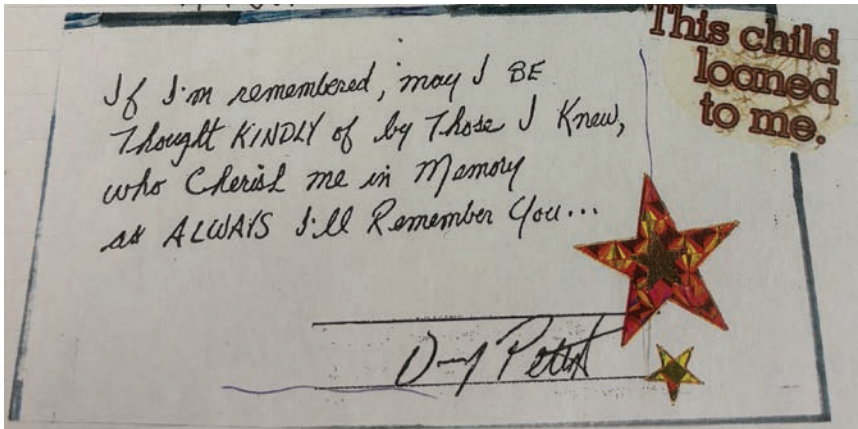 This child
loaned
to me.
If I'm remembered, may I BE
Thought KINDLY of by Those I Knew,
who Cherish me in Memory
as ALWAYS I'll Remember You...